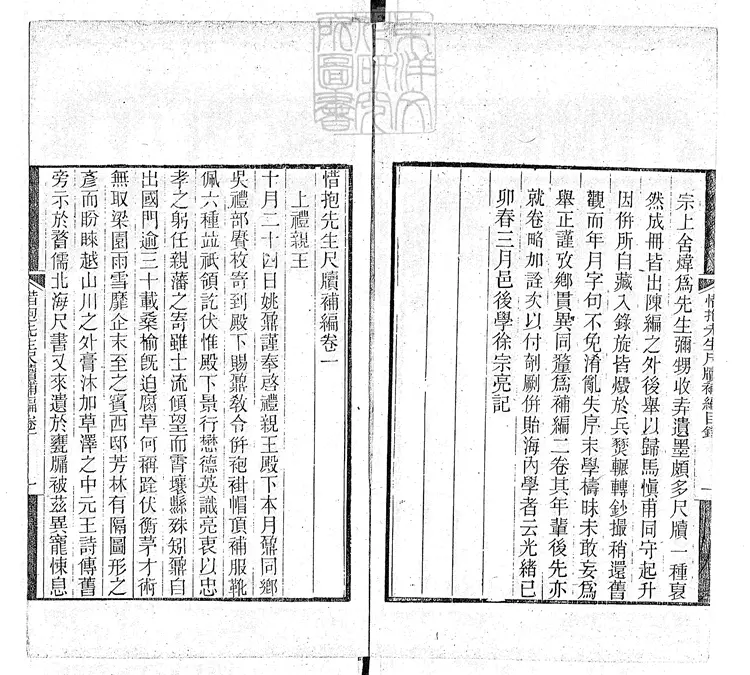 宗上舍煒爲先生彌甥收弆遺墨頗多尺牘一種裒
然成冊皆出陳編之外後舉以歸馬愼甫同守起升
因併所自藏入錄旋皆燬於兵燹輾轉鈔撮稍還舊
觀而年月字句不免淆亂失序末學檮昧未敢妄爲
舉正謹攷鄉貫異同釐爲補編二卷其年輩後先亦
就卷略加詮次以付剞劂併貽海內學者云光緒己
卯春三月邑後學徐宗亮記
惜抱先生尺牘補編目錄
一
惜抱先生尺牘補編卷一
上禮親王
十月二十四日姚鼐謹奉啓禮親王殿下本月鼐同鄉
吳禮部賡枚寄到殿下賜鼐敎合併袍褂帽頂補服靴
佩六種並祇領訖伏惟殿下景行懋德英識亮衷以忠
孝之躬任親藩之寄雖士流傾望而霄壤縣殊矧鼐自
出國門逾三十載桑榆旣迫腐草何稱跧伏衡茅才術
無取梁園雨雪靡企末至之賓西邸芳林有隔圖形之
彥而盼睞越山川之外膏沐加草澤之中元王詩傳舊
旁示於瞀儒北海尺書又來遺於甕牖被茲異寵悚息
惜抱先生尺牘補編卷一
一
東洋文
化硏究
所圖書